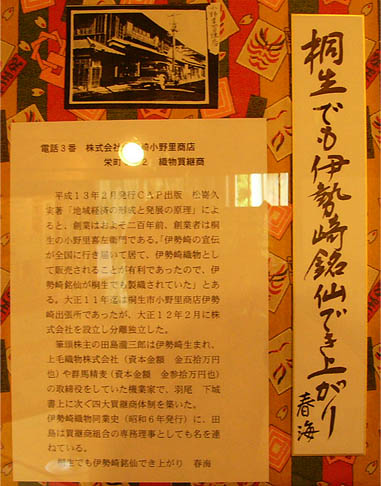 桐生でも伊勢崎銘仙でき上がり
春海
電話3番 株式会 崎小野里商店
栄町 2 織物買継商
平成13年2月発行CAP出版 松嵜久
実著「地域経済の形成と発展の原理」によ
ると、創業はおよそ二百年前、創業者は桐
生の小野里喜左衛門である。「伊勢崎の宣伝
が全国に行き届いて居て、伊勢崎織物とし
て販売されることが有利であったので、伊
勢崎銘仙が桐生でも製織されていた」とあ
る。大正11年迄は桐生市小野里商店伊勢
崎出張所であったが、大正12年2月に株
式会社を設立し分離独立した。
筆頭株主の田島瀧三郎は伊勢崎生まれ、
上毛織物株式会社(資本金額 金五拾万円
也)や群馬精麦(資本金額 金参拾万円也)
の取締役をしていた機業家で、羽尾 下城
書上に次ぐ四大買継商体制を築いた。
伊勢崎織物同業史(昭和6年発行)に、田
島は買継商組合の専務理事としても名を連
ねている。
桐生でも伊勢崎銘仙でき上がり 春海